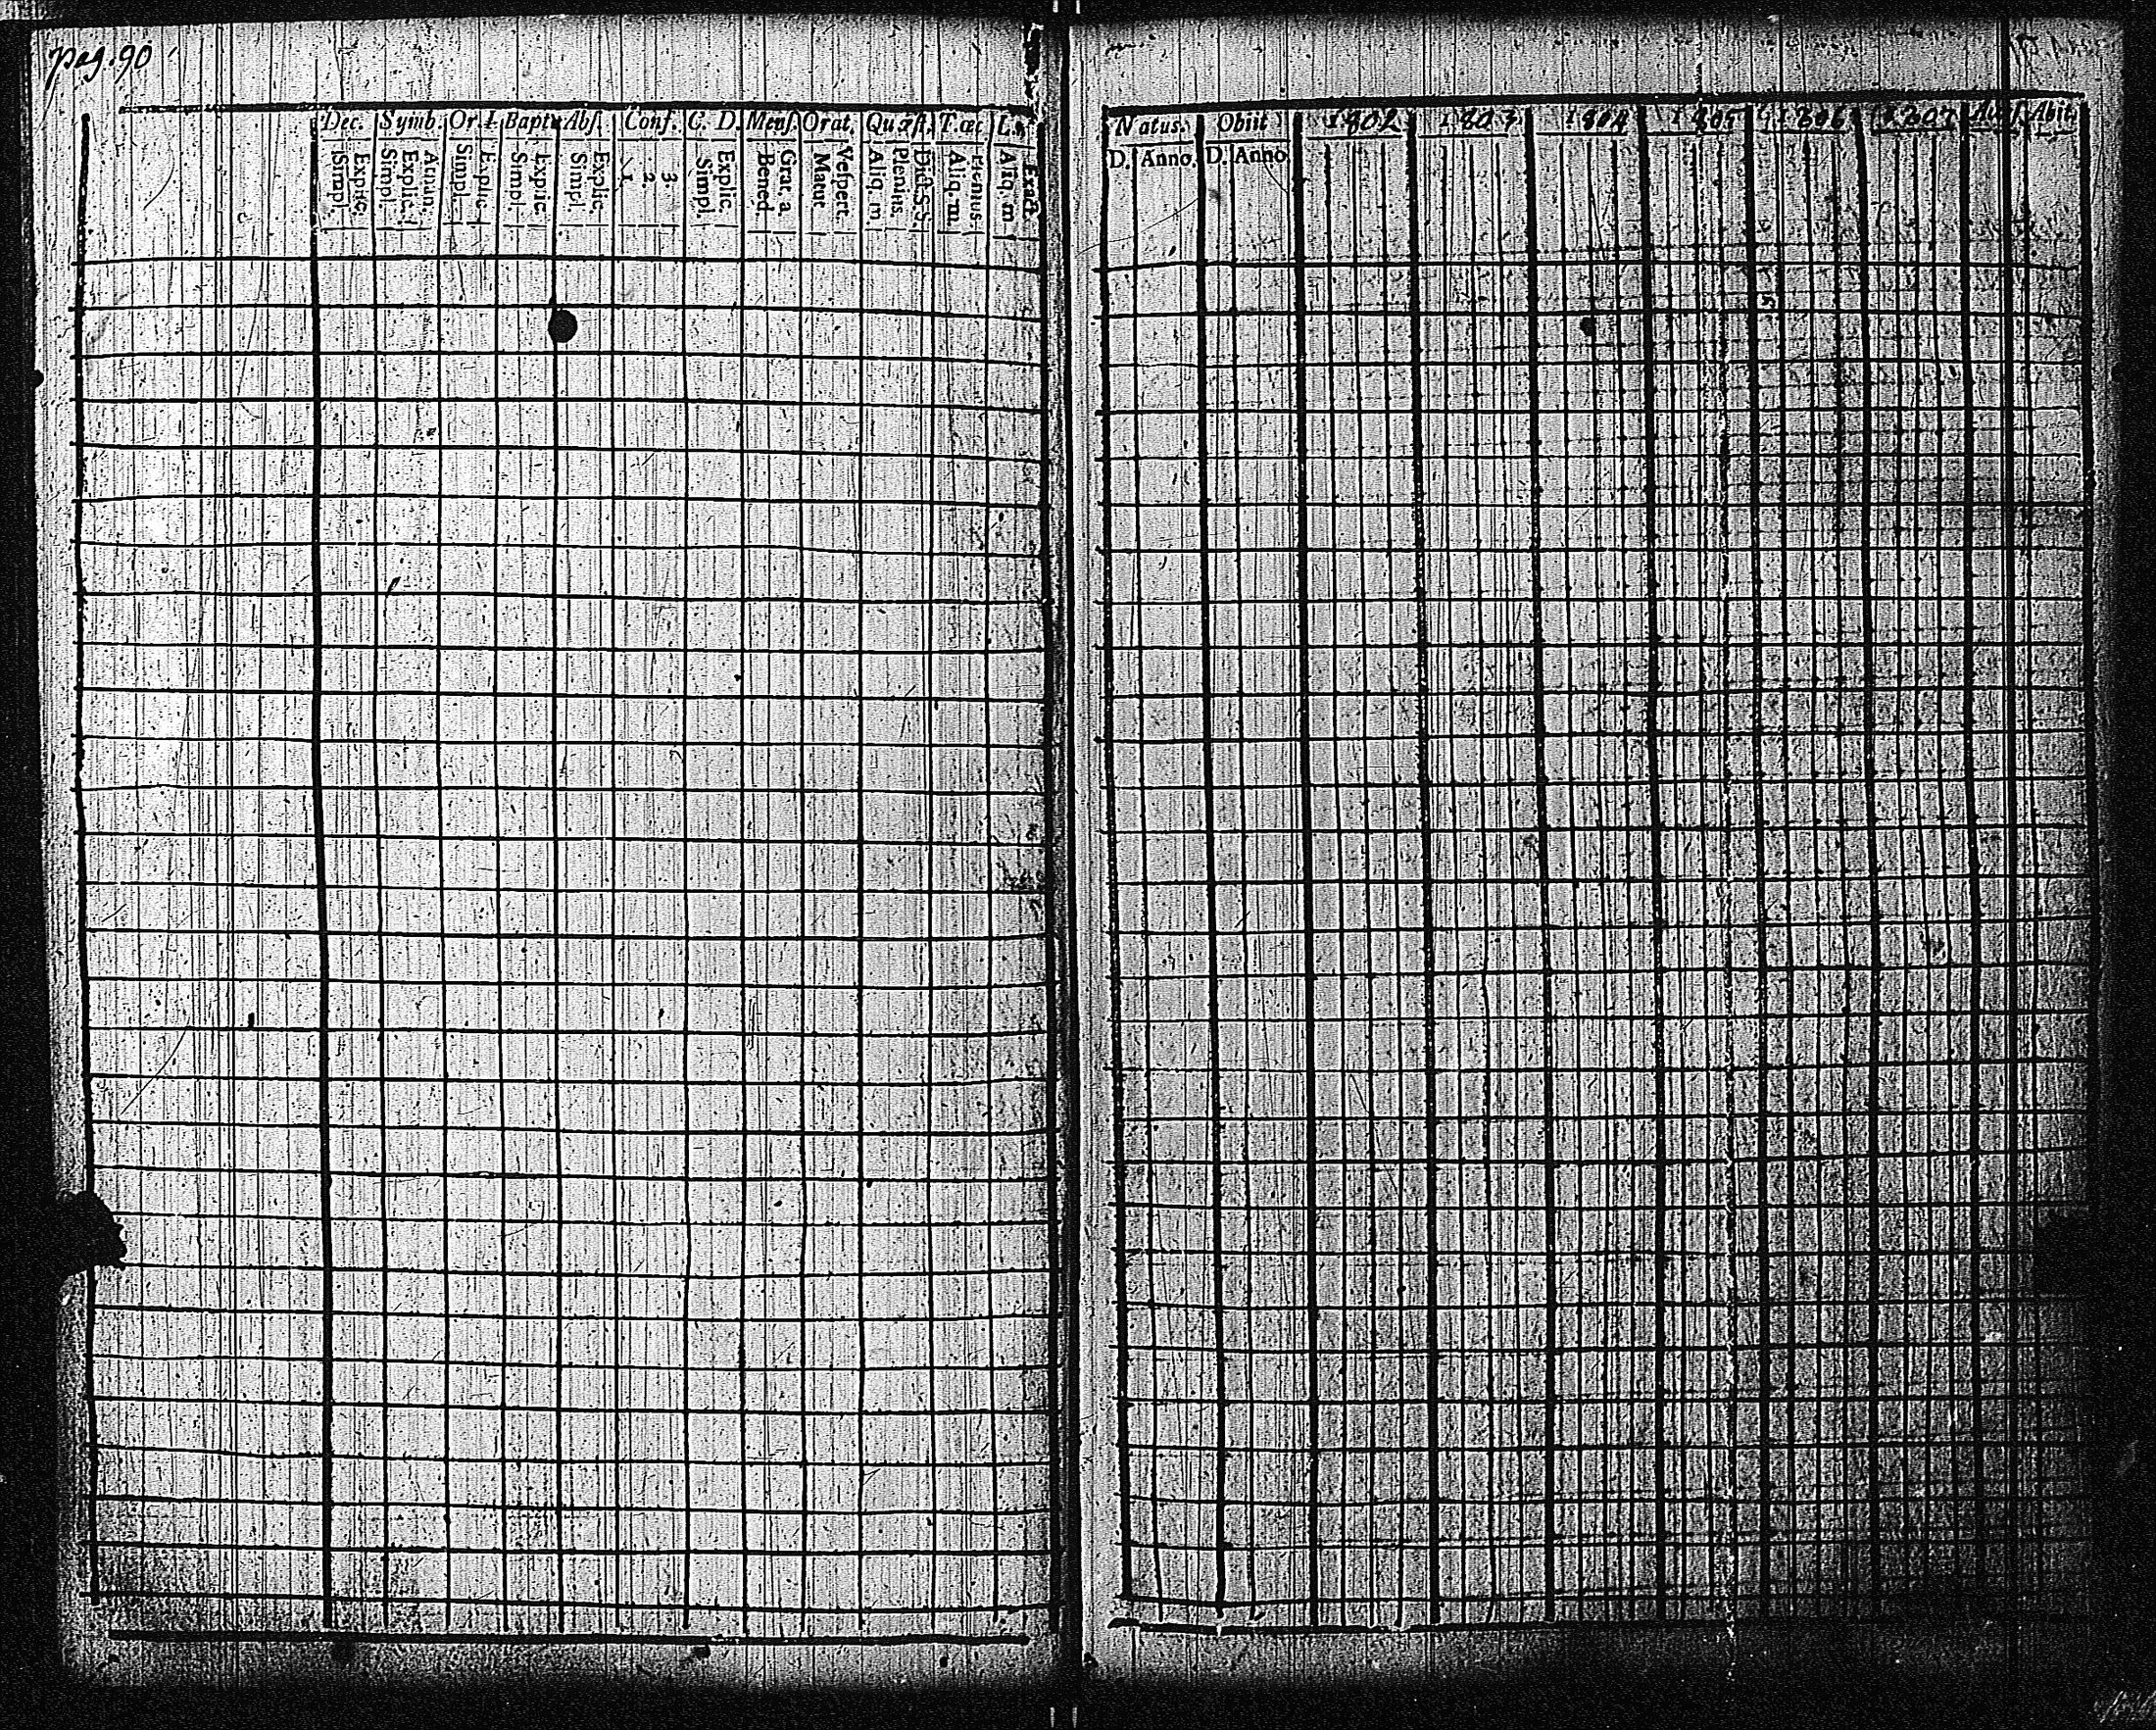 pag. 90
Dec. Symb. Or. Bapt. Abſ. Conf. C. D. Menſ. Orat. Quæſt. T. œc
Simpl. Explic.
Simpl. Explic.
Simpl. Explic.
Simpl. Explic
Simpl. Explic.
1. 2. 3.
Simpl. Explic.
Bened. Grat. a.
Matut. Veſpert.
Aliq. m. Plenius. Dict. S. S.
Aliq. m.
Aliq. m Exact.
Natus. Obiit 1802 1803 1804 1805 1806 1807 Abiit
D. Anno. D. Anno